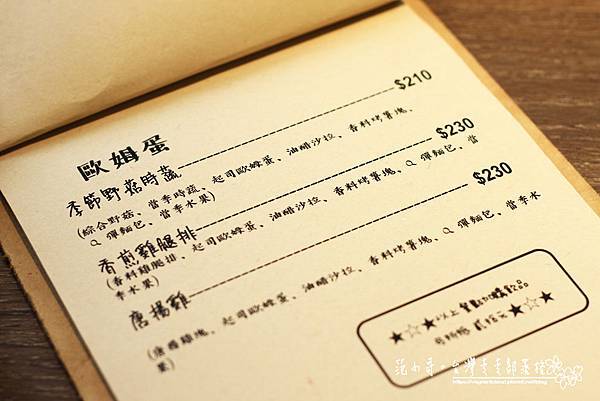 歐姆蛋
季節野菇時蔬 $210
(綜合野菇、當季時蔬、起司歐姆蛋、油醋沙拉、香料烤薯塊、
Q 彈麵包、當季水果)
香煎雞腿排 $230
(香料雞腿排、起司歐姆蛋、油醋沙拉、香料烤薯塊、Q 彈麵包、當
季水果)
唐揚雞 $230
(唐揚雞塊、起司歐姆蛋、油醋沙拉、香料烤薯塊、Q 彈麵包、當季水
果)
★☆★以上餐點加購飲品
可折抵 貳拾元★☆★